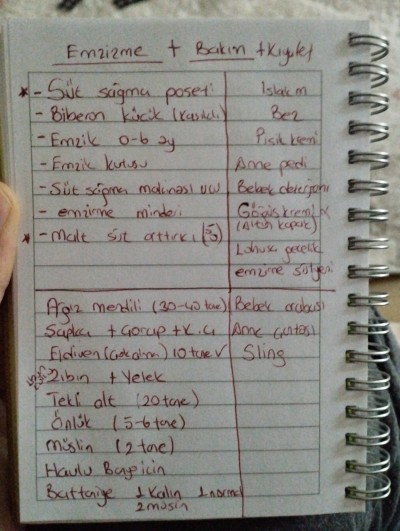 Emzirme + Bakım + Kıyafet
* - Süt sağma poşeti
- Biberon küçük (Kaşıklı)
- Emzik 0-6 ay
- Emzik kutusu
- Süt sağma makinası
- emzirme minderi
* - Malt süt arttırıcı
Islak m
Bez
Pişik kremi
Anne pedi
Bebek deterjanı
Göğüs kremi
(Altın kapak)
Lohusa gecelik
emzirme sütyeni
Ağız mendili (30-40 tane)
Şapka + Çorap +
Eldiven 10 tane √
Zıbın + Yelek
Tek alt (20 tane)
Önlük (5-6 tane)
müslin (2 tane)
Havlu Banyo için
Battaniye 1 Kalın 1 normal
2 müslin
Bebek arabası
Anne çantası
Sling